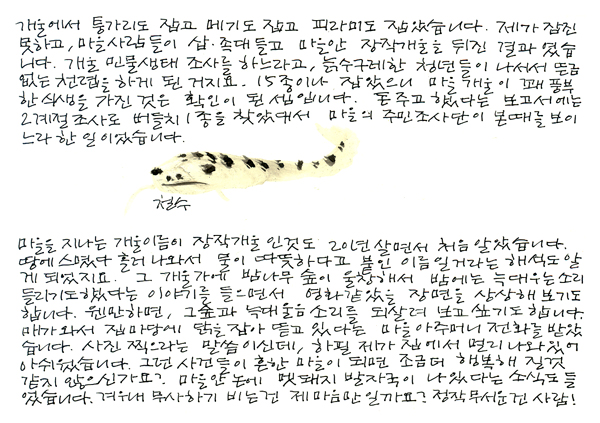 개울에서 퉁가리도 잡고 메기도 잡고 피라미도 잡았습니다. 제가 잡진
못하고, 마을사람들이 삽·족대들고 마을안 장작개울을 뒤진 결과였습
니다. 개울 민물생태 조사를 하느라고, 늙수구레한 청년들이 나서서 뜬금
없는 천렵을 하게 된 거지요. 15종이나 잡았으니 마을개울이 꽤 풍부
한 식생을 가진 것은 확인이 된 셈입니다. 돈주고 했다는 보고서에는
2계절조사로 버들치 1종을 찾았대서 마을의 주민조사단이 본때를 보이
느라 한 일이었습니다.
철수
마을을 지나는 개울이름이 장작개울인것도 20년 살면서 처음 알았습니다.
땅에 스몄다 흘러나와서 물이 따뜻하다고 붙인 이름일거라는 해석도 알
게 되었지요. 그 개울가에 밤나무 숲이 울창해서 밤에는 늑대우는소리
들리기도했다는 이야기를 들으면서 영화같았을 장면을 상상해 보기도
합니다. 웬만하면, 그숲과 늑대울음소리를 되살려 보고 싶기도 합니다.
매가와서 집마당에 닭을 잡아 뜯고 있다는 마을아주머니 전화를 받았
습니다. 사진 찍으라는 말씀이신데, 하필 제가 집에서 멀리 나와있어
아쉬웠습니다. 그런 사건들이 흔한 마을이 되면 조금더 행복해 질것
같지 않으신가요? 마을안 논에 멧돼지 발자국이 나있다는 소식도 들
었습니다. 겨우내 무사하기 비는건 제마음만일까요? 정작무서운건 사람!